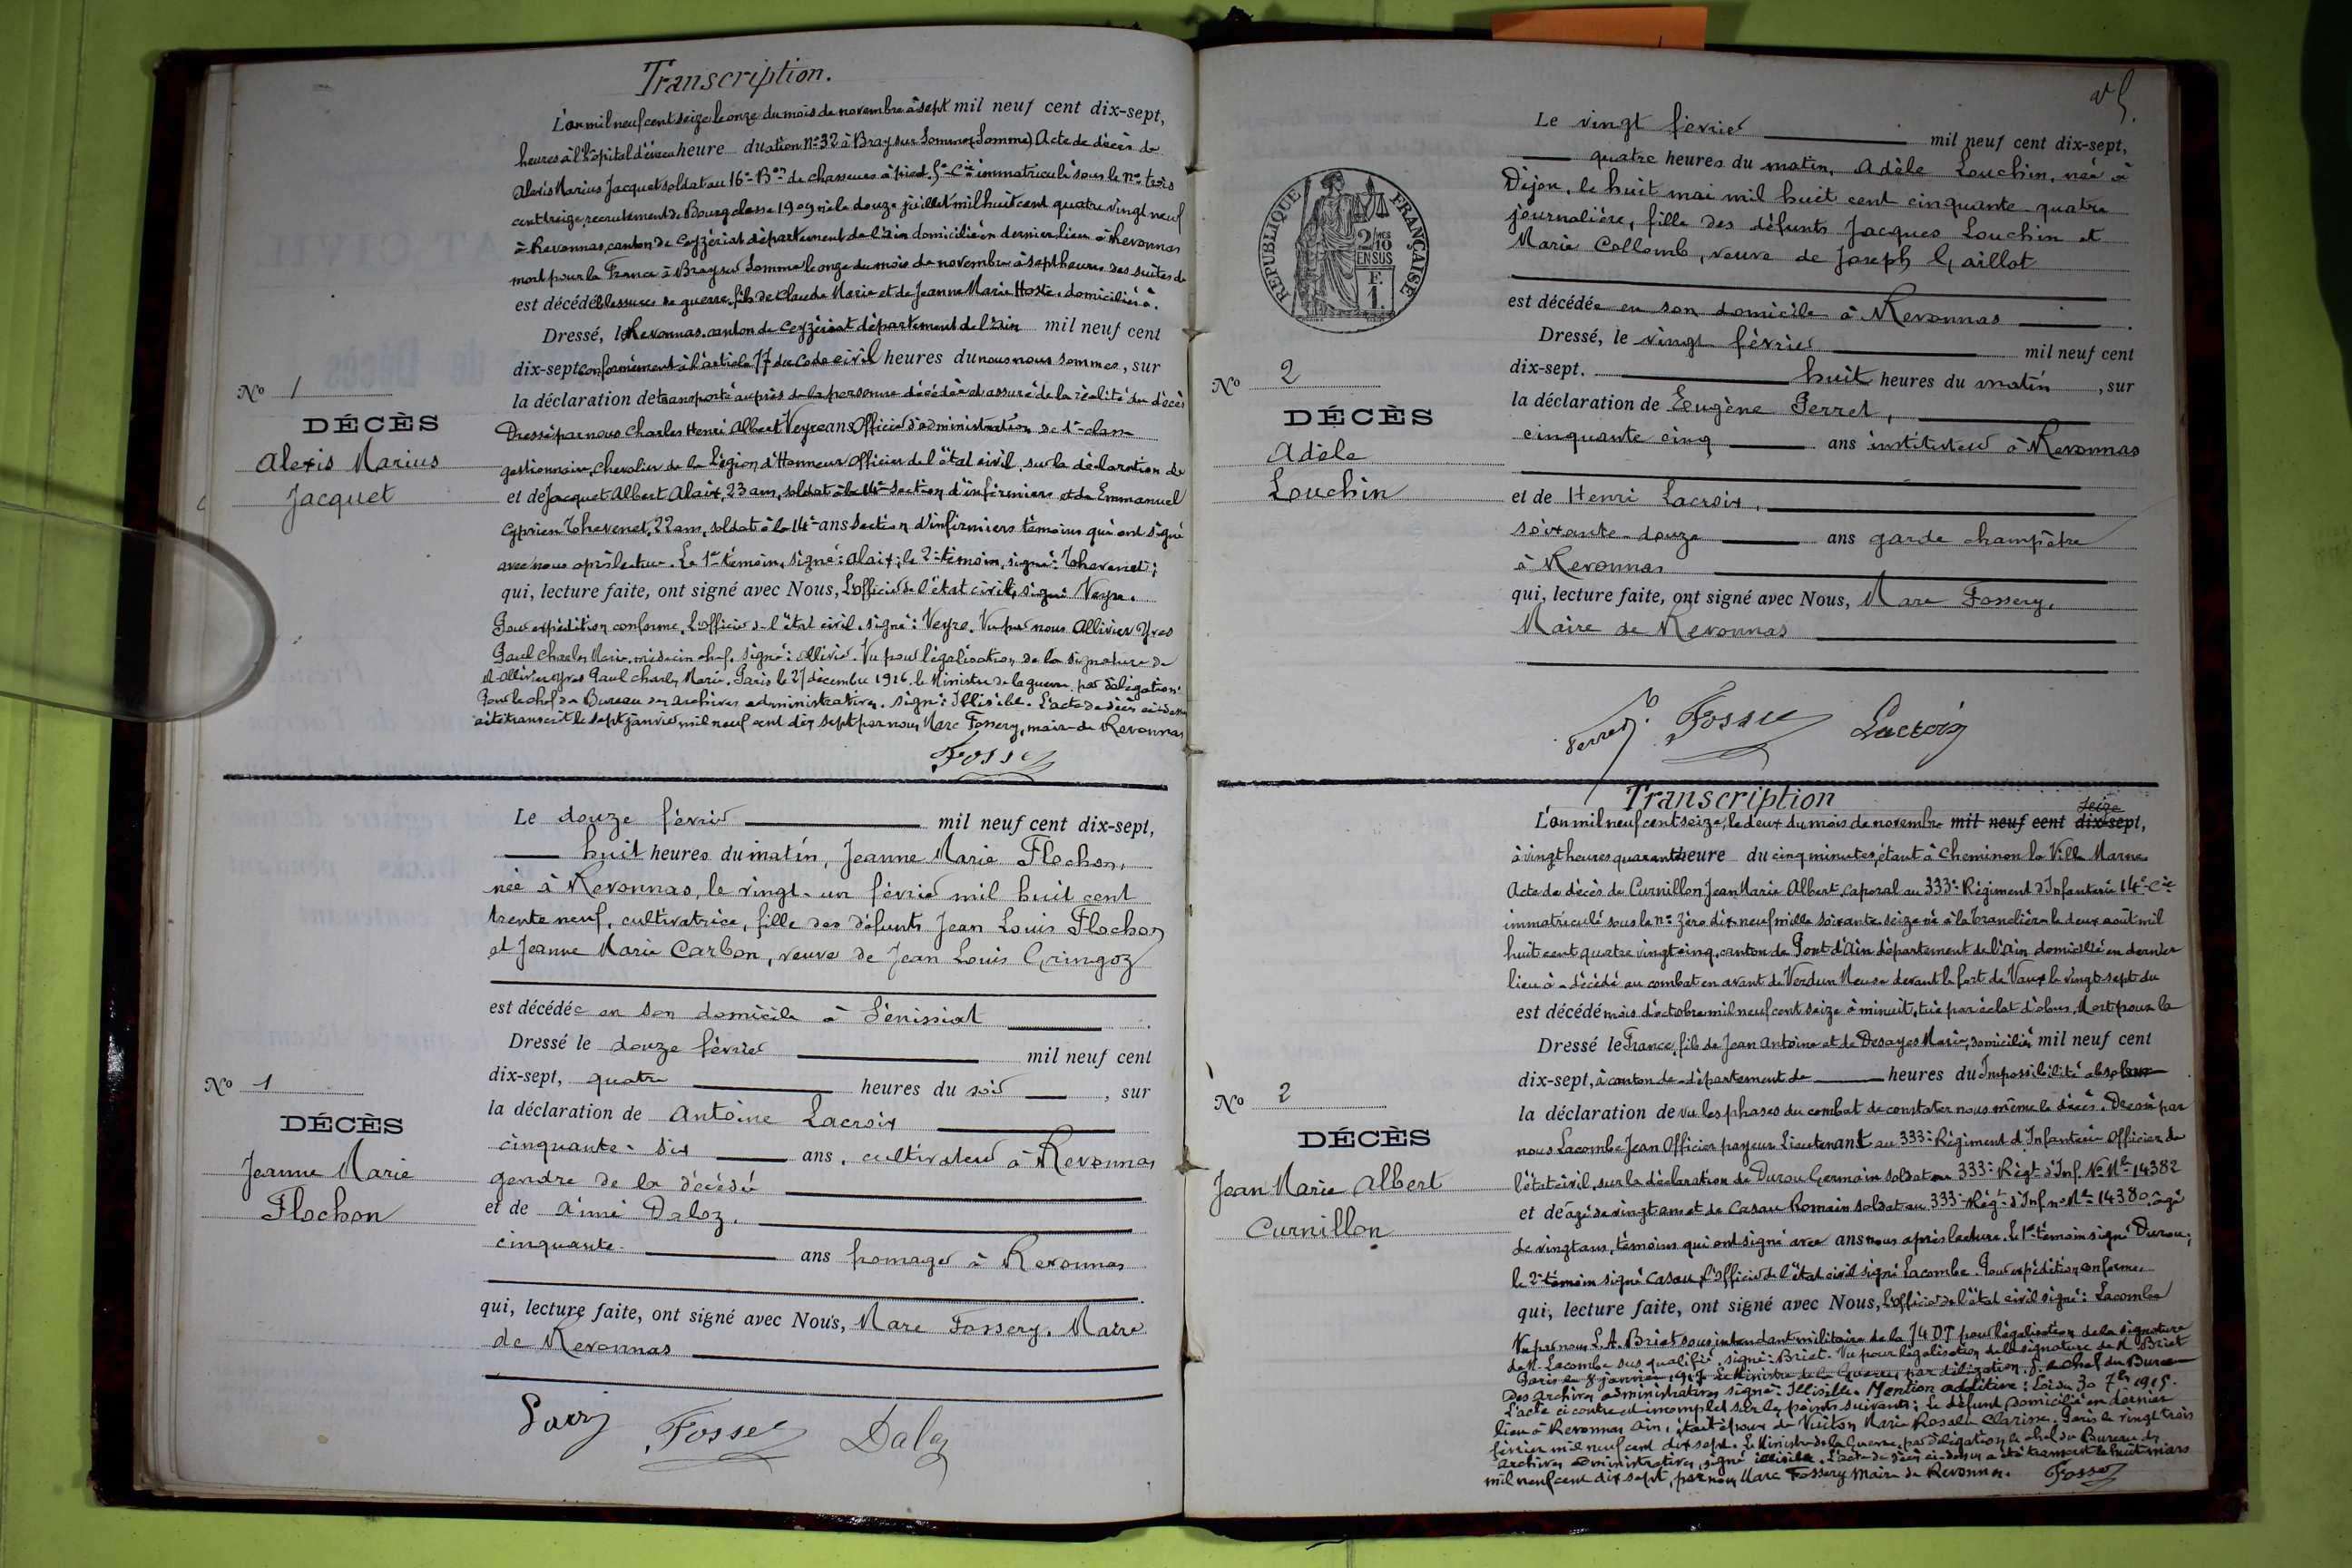 Transcription.
L'an mil neuf cent seize le onze du mois de novembre à sept mil neuf cent dix-sept,
heures à l'hôpital d'évacuation heure du n° 32 à Bray sur Somme (Somme) Acte de décès de
Alexis Marius Jacquet soldat au 16e Bon de chasseurs à pied. 5e Cie immatriculé sous le n° trois
cent treize, recrutement de Bourg classe 1909 né le douze juillet mil huit cent quatre vingt neuf
à Revonnas, canton de Ceyzériat département de l'Ain domicilié en dernier lieu à Revonnas
mort pour la France à Bray sur Somme le onze du mois de novembre à sept heures des suites de
est décédé blessures de guerre, fils de Claude Marie et de Jeanne Marie Hoste, domiciliés à.
Dressé, le Revonnas, canton de Ceyzériat département de l'Ain mil neuf cent
dix-sept conformément à l'article 77 du Code civil heures du nous nous sommes, sur
la déclaration de transporté auprès de la personne décédée et assuré de la réalité du décès
Dressé par nous Charles Henri Albert Veyre ans Officier d'administration de 1e classe
gestionnaire, Chevalier de la Légion d'Honneur Officier de l'état civil, sur la déclaration de
et de Jacquet Albert Alaix, 23 ans, soldat à la 14e section d'infirmiers et de Emmanuel
Cyprien Thevenet, 22 ans, soldat à la 14e ans section d'infirmiers témoins qui ont signé
avec nous après lecture. Le 1er témoin, signé: Alaix; le 2e témoin, signé: Thevenet;
qui, lecture faite, ont signé avec Nous, L'officier de l'état civil, signé Veyre.
Pour expédition conforme. L'officier de l'état civil. signé: Veyre. Vu par nous Allivier Yves
Paul Charles Marie, médecin chef. Signé: Allivier. Vu pour légalisation de la signature de
M. Allivier Yves Paul Charles Marie. Paris le 27 décembre 1916. le Ministre de la guerre. par délégation.
Pour le chef du Bureau des archives administratives. signé: Illisible. L'acte de décès ci-dessus
a été transcrit le sept janvier mil neuf cent dix sept par nous, Marc Fossery, maire de Revonnas
Fossery
N° 1
DÉCÈS
Alexis Marius
Jacquet
Le douze février mil neuf cent dix-sept,
huit heures du matin, Jeanne Marie Flochon,
née à Revonnas, le vingt-un février mil huit cent
trente neuf, cultivatrice, fille des défunts Jean Louis Flochon
et Jeanne Marie Carbon, veuve de Jean Louis Gringoz
est décédée en son domicile à Sénissiat
Dressé le douze février mil neuf cent
dix-sept, quatre heures du soir, sur
la déclaration de Antoine Lacroix
cinquante-six ans, cultivateur à Revonnas
gendre de la décédée
et de Aimé Daloz.
cinquante ans fromager à Revonnas
qui, lecture faite, ont signé avec Nous, Marc Fossery. Maire
de Revonnas
Fossery Daloz
N° 1
DÉCÈS
Jeanne Marie
Flochon
Le vingt février mil neuf cent dix-sept,
quatre heures du matin, Adèle Louchin, née à
Dijon, le huit mai mil huit cent cinquante-quatre
journalière, fille des défunts Jacques Louchin et
Marie Collomb, veuve de Joseph Gaillot
est décédée en son domicile à Revonnas.
Dressé, le vingt février mil neuf cent
dix-sept. huit heures du matin, sur
la déclaration de Eugène Perret,
cinquante cinq ans instituteur à Revonnas
et de Henri Lacroix,
soixante-douze ans garde champêtre
à Revonnas
qui, lecture faite, ont signé avec Nous, Marc Fossery.
Maire de Revonnas
Perret. Fossery Lacroix
RÉPUBLIQUE FRANÇAISE
2/10
EN SUS
F.
1.
N° 2
DÉCÈS
Adèle
Louchin
Transcription
seize
L'an mil neuf cent seize, le deux du mois de novembre mil neuf cent dix-sept,
à vingt heures quarante heure du cinq minutes, étant à Cheminon la Ville Marne
Acte de décès de Curnillon Jean Marie Albert, caporal au 333e Régiment d'Infanterie 14e Cie
immatriculé sous le n° zéro dix neuf mille soixante seize né à la Tranclière le deux août mil
huit cent quatre vingt cinq, canton de Pont d'Ain département de l'Ain, domicilié en dernier
lieu à - décédé au combat en avant de Verdun Meuse devant le fort de Vaux le vingt-sept du
est décédé mois d'octobre mil neuf cent seize à minuit, tué par éclat d'obus, Mort pour la
Dressé le France, fils de Jean Antoine et de Desayes Marie, domiciliés mil neuf cent
dix-sept, à canton de - département de heures du Impossibilité absolue
la déclaration de vu les phases du combat de constater nous même le décès. Dressé par
nous Lacombe Jean Officier payeur Lieutenant au 333e Régiment d'Infanterie Officier de
l'état civil, sur la déclaration de Durou Germain soldat au 333e Régt d'Inf. N° Mle 14382
et de âgé de vingt ans et de Casau Romain soldat au 333e Régt d'Inf n° Mle 14380, âgé
de vingt ans, témoins qui ont signé avec ans nous après lecture. Le 1er témoin signé Durou;
le 2e témoin signé Casau, l'Officier de l'état civil signé Lacombe. Pour expédition conforme
qui, lecture faite, ont signé avec Nous, l'officier de l'état civil signé: Lacombe
Vu par nous L.A. Briet sous intendant militaire de la 74 DI pour légalisation de la signature
de M. Lacombe sus qualifié. signé: Briet. Vu pour légalisation de la signature de M. Briet
Paris le 8 janvier 1917 Le Ministre de la Guerre, par délégation. P. le chef du Bureau
des archives administratives signé: Illisible. Mention additive: Loi du 30 7bre 1915.
L'acte ci contre est incomplet sur les points suivants: Le défunt, domicilié en dernier
lieu à Revonnas Ain, était époux de Vuiton Marie Rosalie Clarisse. Paris le vingt trois
février mil neuf cent dix sept. Le Ministre de la Guerre, par délégation le chef du Bureau des
archives administratives, signé illisible. L'acte de décès ci-dessus a été transcrit le huit mars
mil neuf cent dix sept, par nous Marc Fossery maire de Revonnas. Fossery
N° 2
DÉCÈS
Jean Marie Albert
Curnillon